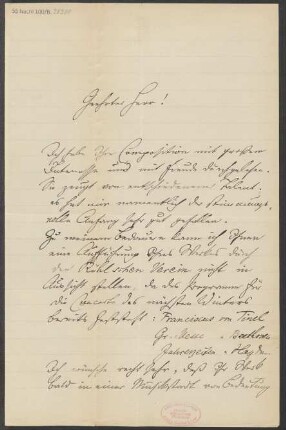 Geehrter Herr!
Ich habe Ihre Composition mit großem
Interesse und mit Freude durchgelesen.
Sie zeugt von entschiedenem Talent.
es hat mir namentlich der stimmungs-
volle Anfang sehr gut gefallen.
Zu meinem Bedauern kann ich Ihnen
eine Aufführung Ihres Werkes durch
den Rühl'schen Verein nicht in
Aussicht stellen, da das Programm für
die Concerte des nächsten Winters
bereits feststeht. Franciscus von Tinel
Gr. Messe v. Beethoven
Jahreszeiten v. Haydn
Ich wünsche recht sehr, daß Ihr Werk
bald in einer Musikstadt von Bedeutung